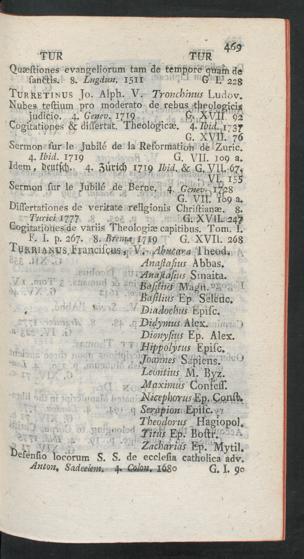 469
TUR TUR
Quæstiones evangeliorum tam de tempore quam de
sanctis. 8. Lugdun. 1511 G. I. 228
TURRETINUS Jo. Alph. V. Tronchinus Ludov.
Nubes testium pro moderato de rebus theologicis
judicio. 4. Genev. 1719 G. XVII. 92
Cogitationes & dissertat. Theologicæ. 4. Ibid. 1737
G. XVII. 76
Sermon sur le Jubilé de la Reformation de Zuric.
4. Ibid. 1719 G. VII. 109 a.
Idem, deutsch. 4. Zürich 1719 Ibid. & G. VII. 67.
VI. 155
Sermon sur le Jubilé de Berne. 4. Genev. 1728
G. VII. 109 a.
Dissertationes de veritate religionis Christianæ. 8.
Turici 1777 G. XVII. 247
Cogitationes de variis Theologiæ capitibus. Tom. I.
F. I. p. 267. 8. Bremæ 1719 G. XVII. 268
TURRIANUS Franciscus, V. Abucara Theod.
Anastasius Abbas.
Anastasius Sinaita.
Basilius Magn.
Basilius Ep. Seleuc.
Diadochus Episc.
Didymus Alex.
Dionysius Ep. Alex.
Hippolytus Episc.
Joannes Sapiens.
Leontius M. Byz.
Maximus Confess.
Nicephorus Ep. Const.
Serapion Episc.
Theodorus Hagiopol.
Titus Ep. Bostr.
Zacharias Ep. Mytil.
Defensio locorum S. S. de ecclesia catholica adv.
Anton. Sadeelem. 4. Colon. 1680 G. I. 90